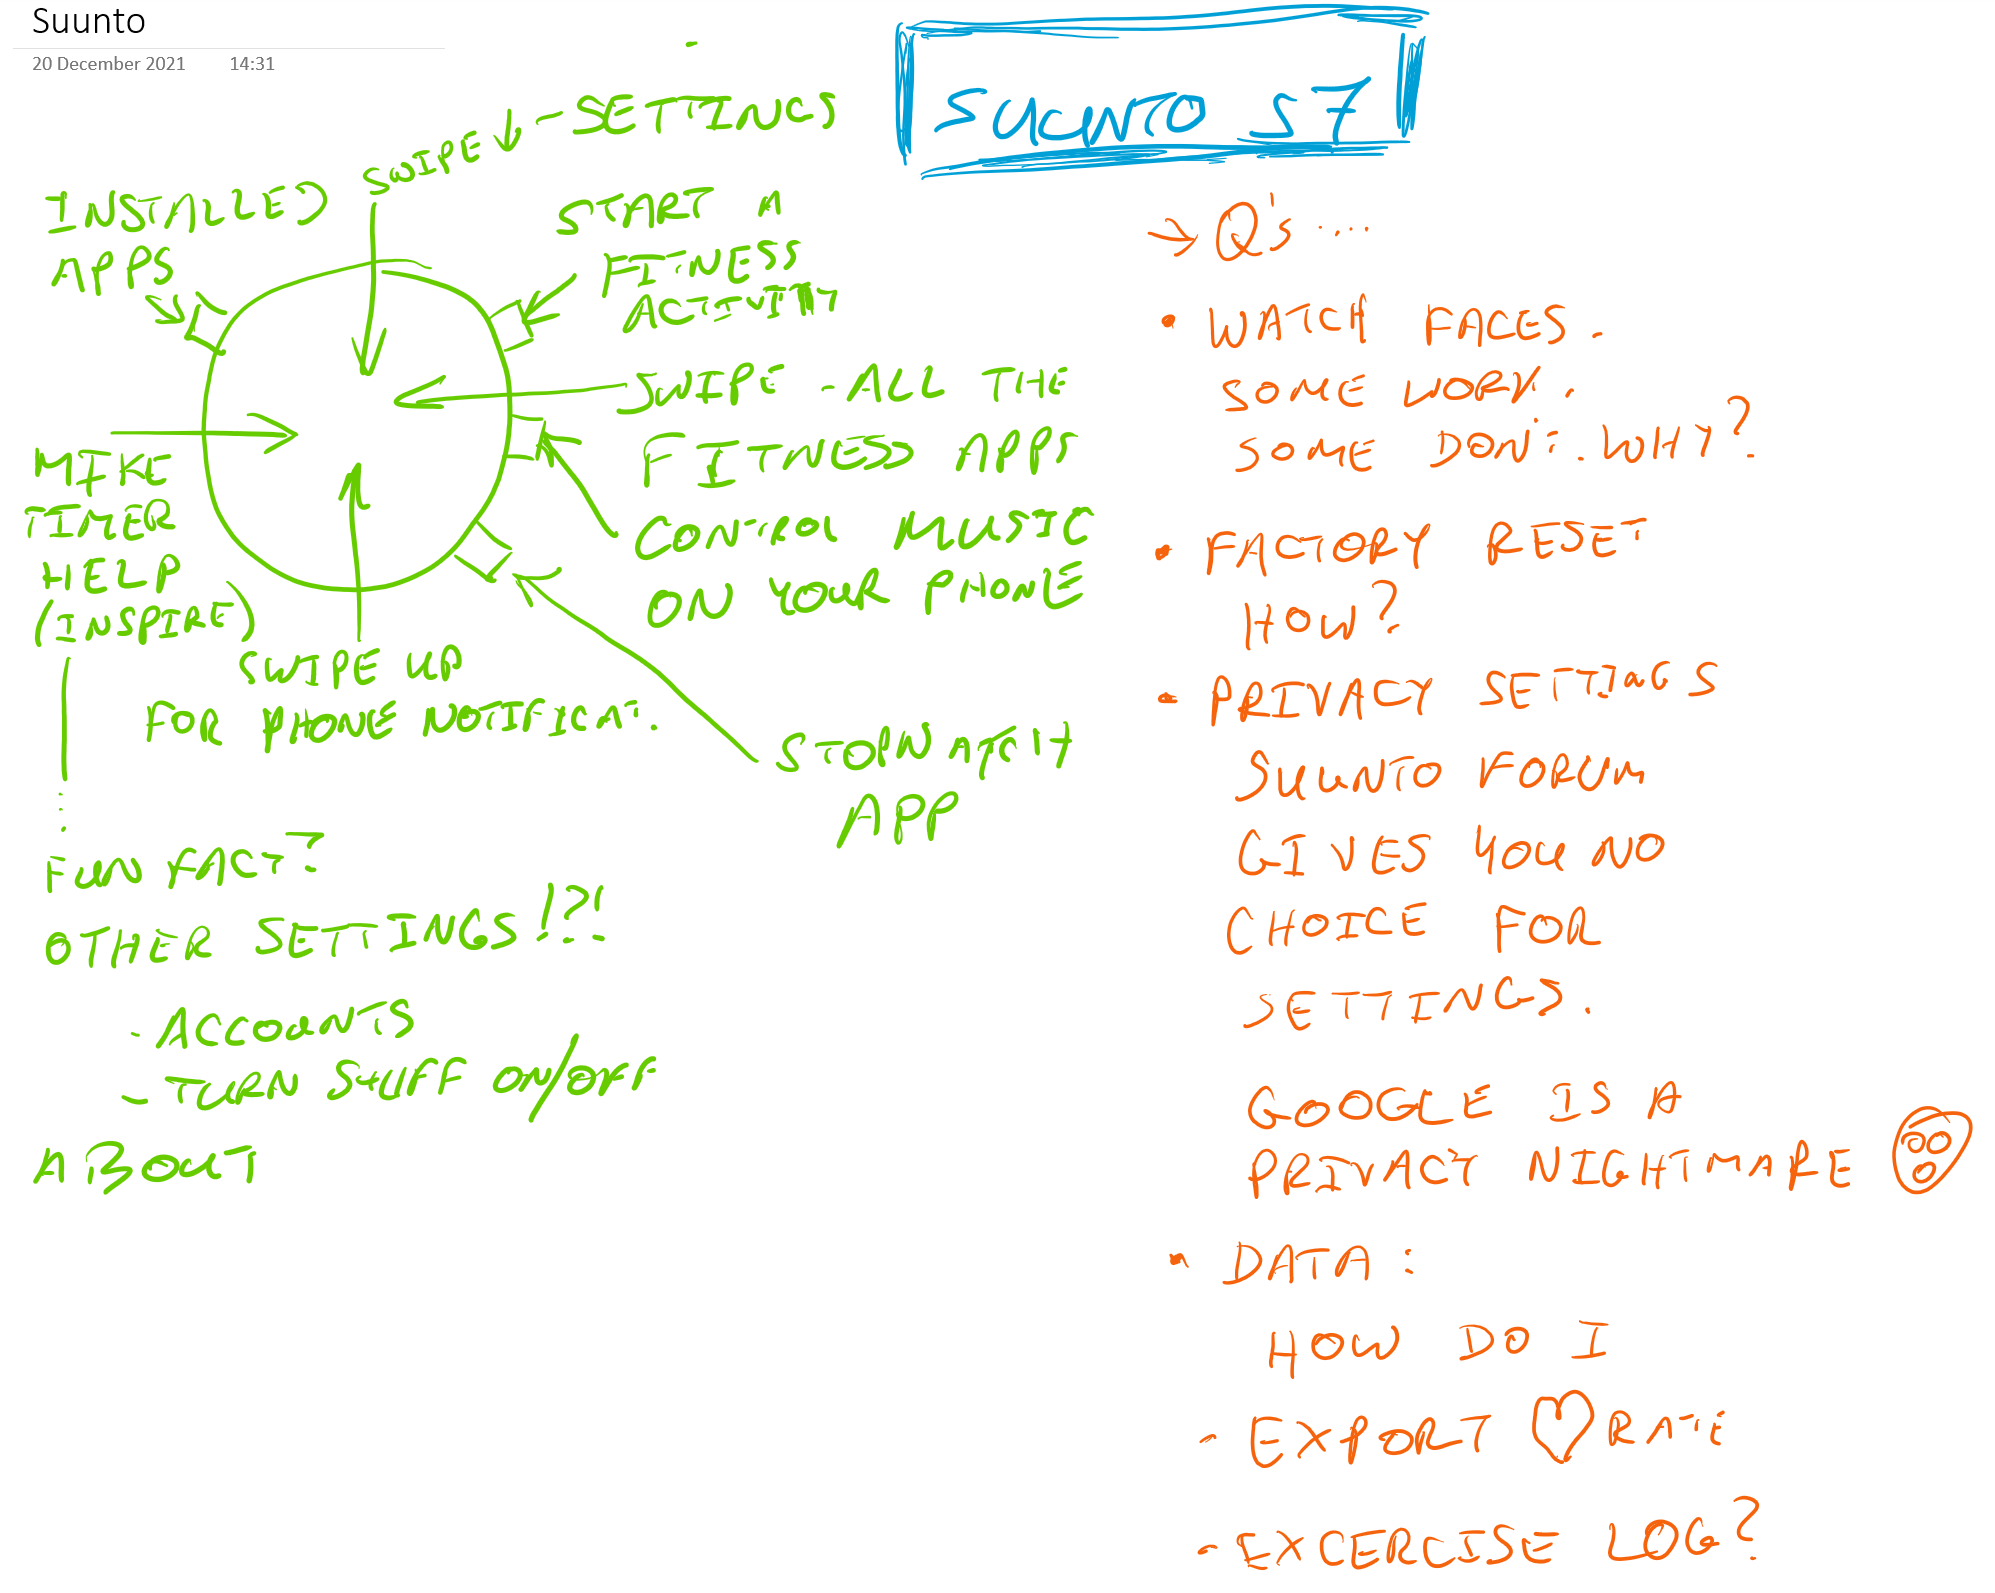 Suunto
20 December 2021 14:31
SUUNTO S7
SWIPE ↓ - SETTINGS
INSTALLED
APPS
START A
FITNESS
ACTIVITY
SWIPE - ALL THE
FITNESS APPS
CONTROL MUSIC
ON YOUR PHONE
MIKE
TIMER
HELP
(INSPIRE)
SWIPE UP
FOR PHONE NOTIFICAT.
STOPWATCH
APP
FUN FACT?
OTHER SETTINGS!?!
- ACCOUNTS
- TURN STUFF ON/OFF
ABOUT
→ Q's ....
• WATCH FACES.
SOME WORK.
SOME DON'T. WHY?
• FACTORY RESET
HOW?
• PRIVACY SETTINGS
SUUNTO FORUM
GIVES YOU NO
CHOICE FOR
SETTINGS.
GOOGLE IS A
PRIVACY NIGHTMARE
• DATA:
HOW DO I
- EXPORT ♡ RATE
- EXCERCISE LOG?